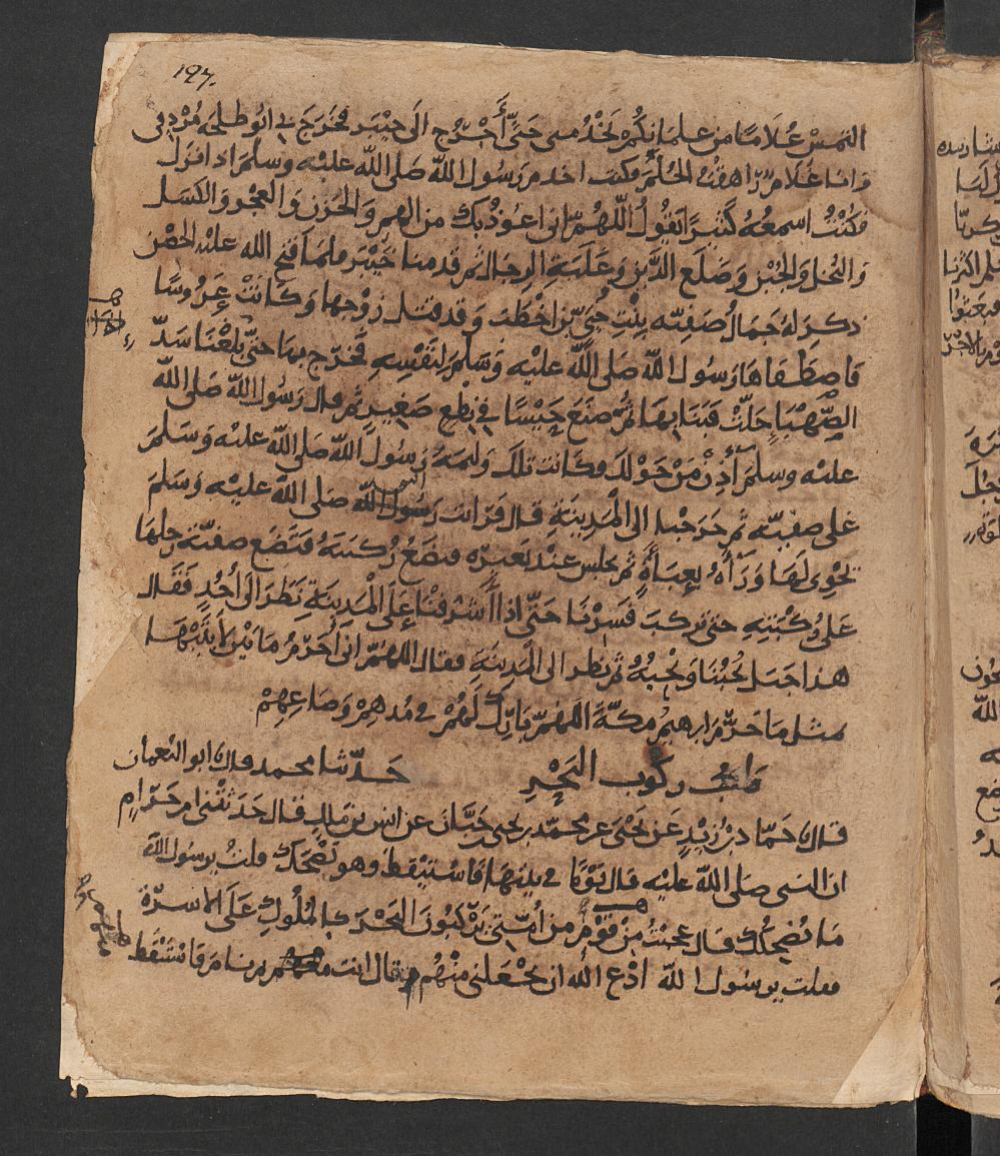 197.
التمس غلاما من غلمانكم يخدمني حتى أخرج الى خيبر فخرج بي ابو طلحه مردفي
وانا غلام راهقت الحلم فكنت اخدم رسول الله صلى الله عليه وسلم اذا نزل
فكنت اسمعه كثيرا يقول اللهم اني اعوذ بك من الهم والحزن والعجز والكسل
والبخل والجبن وضلع الدين وغلبة الرجال ثم قدمنا خيبر فلما فتح الله عليه الحصن
ذكر له جمال صفيه بنت حيي بن اخطب وقد قتل زوجها وكانت عروسا
فاصطفاها رسول الله صلى الله عليه وسلم لنفسه فخرج بها حتى بلغنا سد
الصهبا حلت فبنا بها ثم صنع حيسا في نطع صغير ثم قال رسول الله صلى الله
عليه وسلم آذن من حولك فكانت تلك وليمة رسول الله صلى الله عليه وسلم
على صفيه ثم خرجنا الى المدينة قال فرايت رسول الله صلى الله عليه وسلم
يحوي لها وراه بعباة ثم يجلس عند بعيره فيضع ركبته فتضع صفية رجلها
على ركبته حتى تركب فسرنا حتى اذا أشرفنا على المدينة نظر الى أحد فقال
هذا جبل يحبنا ونحبه ثم نظر الى المدينة فقال اللهم اني أحرم ما بين لابتيها
مثل ما حرم ابرهيم مكة اللهم بارك لهم في مدهم وصاعهم
باب ركوب البحر حدثنا محمد قال ابو النعمان
قال حماد بن زيد عن يحيى عن محمد بن يحيى بن حبان عن انس بن مالك قال حدثتني ام حرام
ان النبي صلى الله عليه قال يوما في بيتها فاستيقظ وهو يضحك قلت يرسول الله
ما يضحكك قال عجبت من قوم من أمتي يركبون البحر كالملوك على الاسرة
فقلت يرسول الله ادع الله ان يجعلني منهم فقال انت معهم ثم نام فاستيقظ